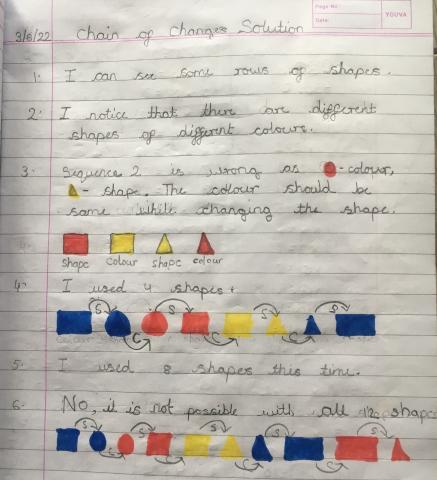 Page No:
Date:
YOUVA
3/6/22 Chain of Changes Solution
1. I can see some rows of shapes.
2. I notice that there are different
shapes of different colours.
3. Sequence 2 is wrong as - colour,
- shape. The colour should be
same while changing the shape.
shape colour shape colour
4. I used 4 shapes.
S S S S
C C C
5. I used 8 shapes this time.
6. No, it is not possible with all 12 shapes
S S S S S
C C C C